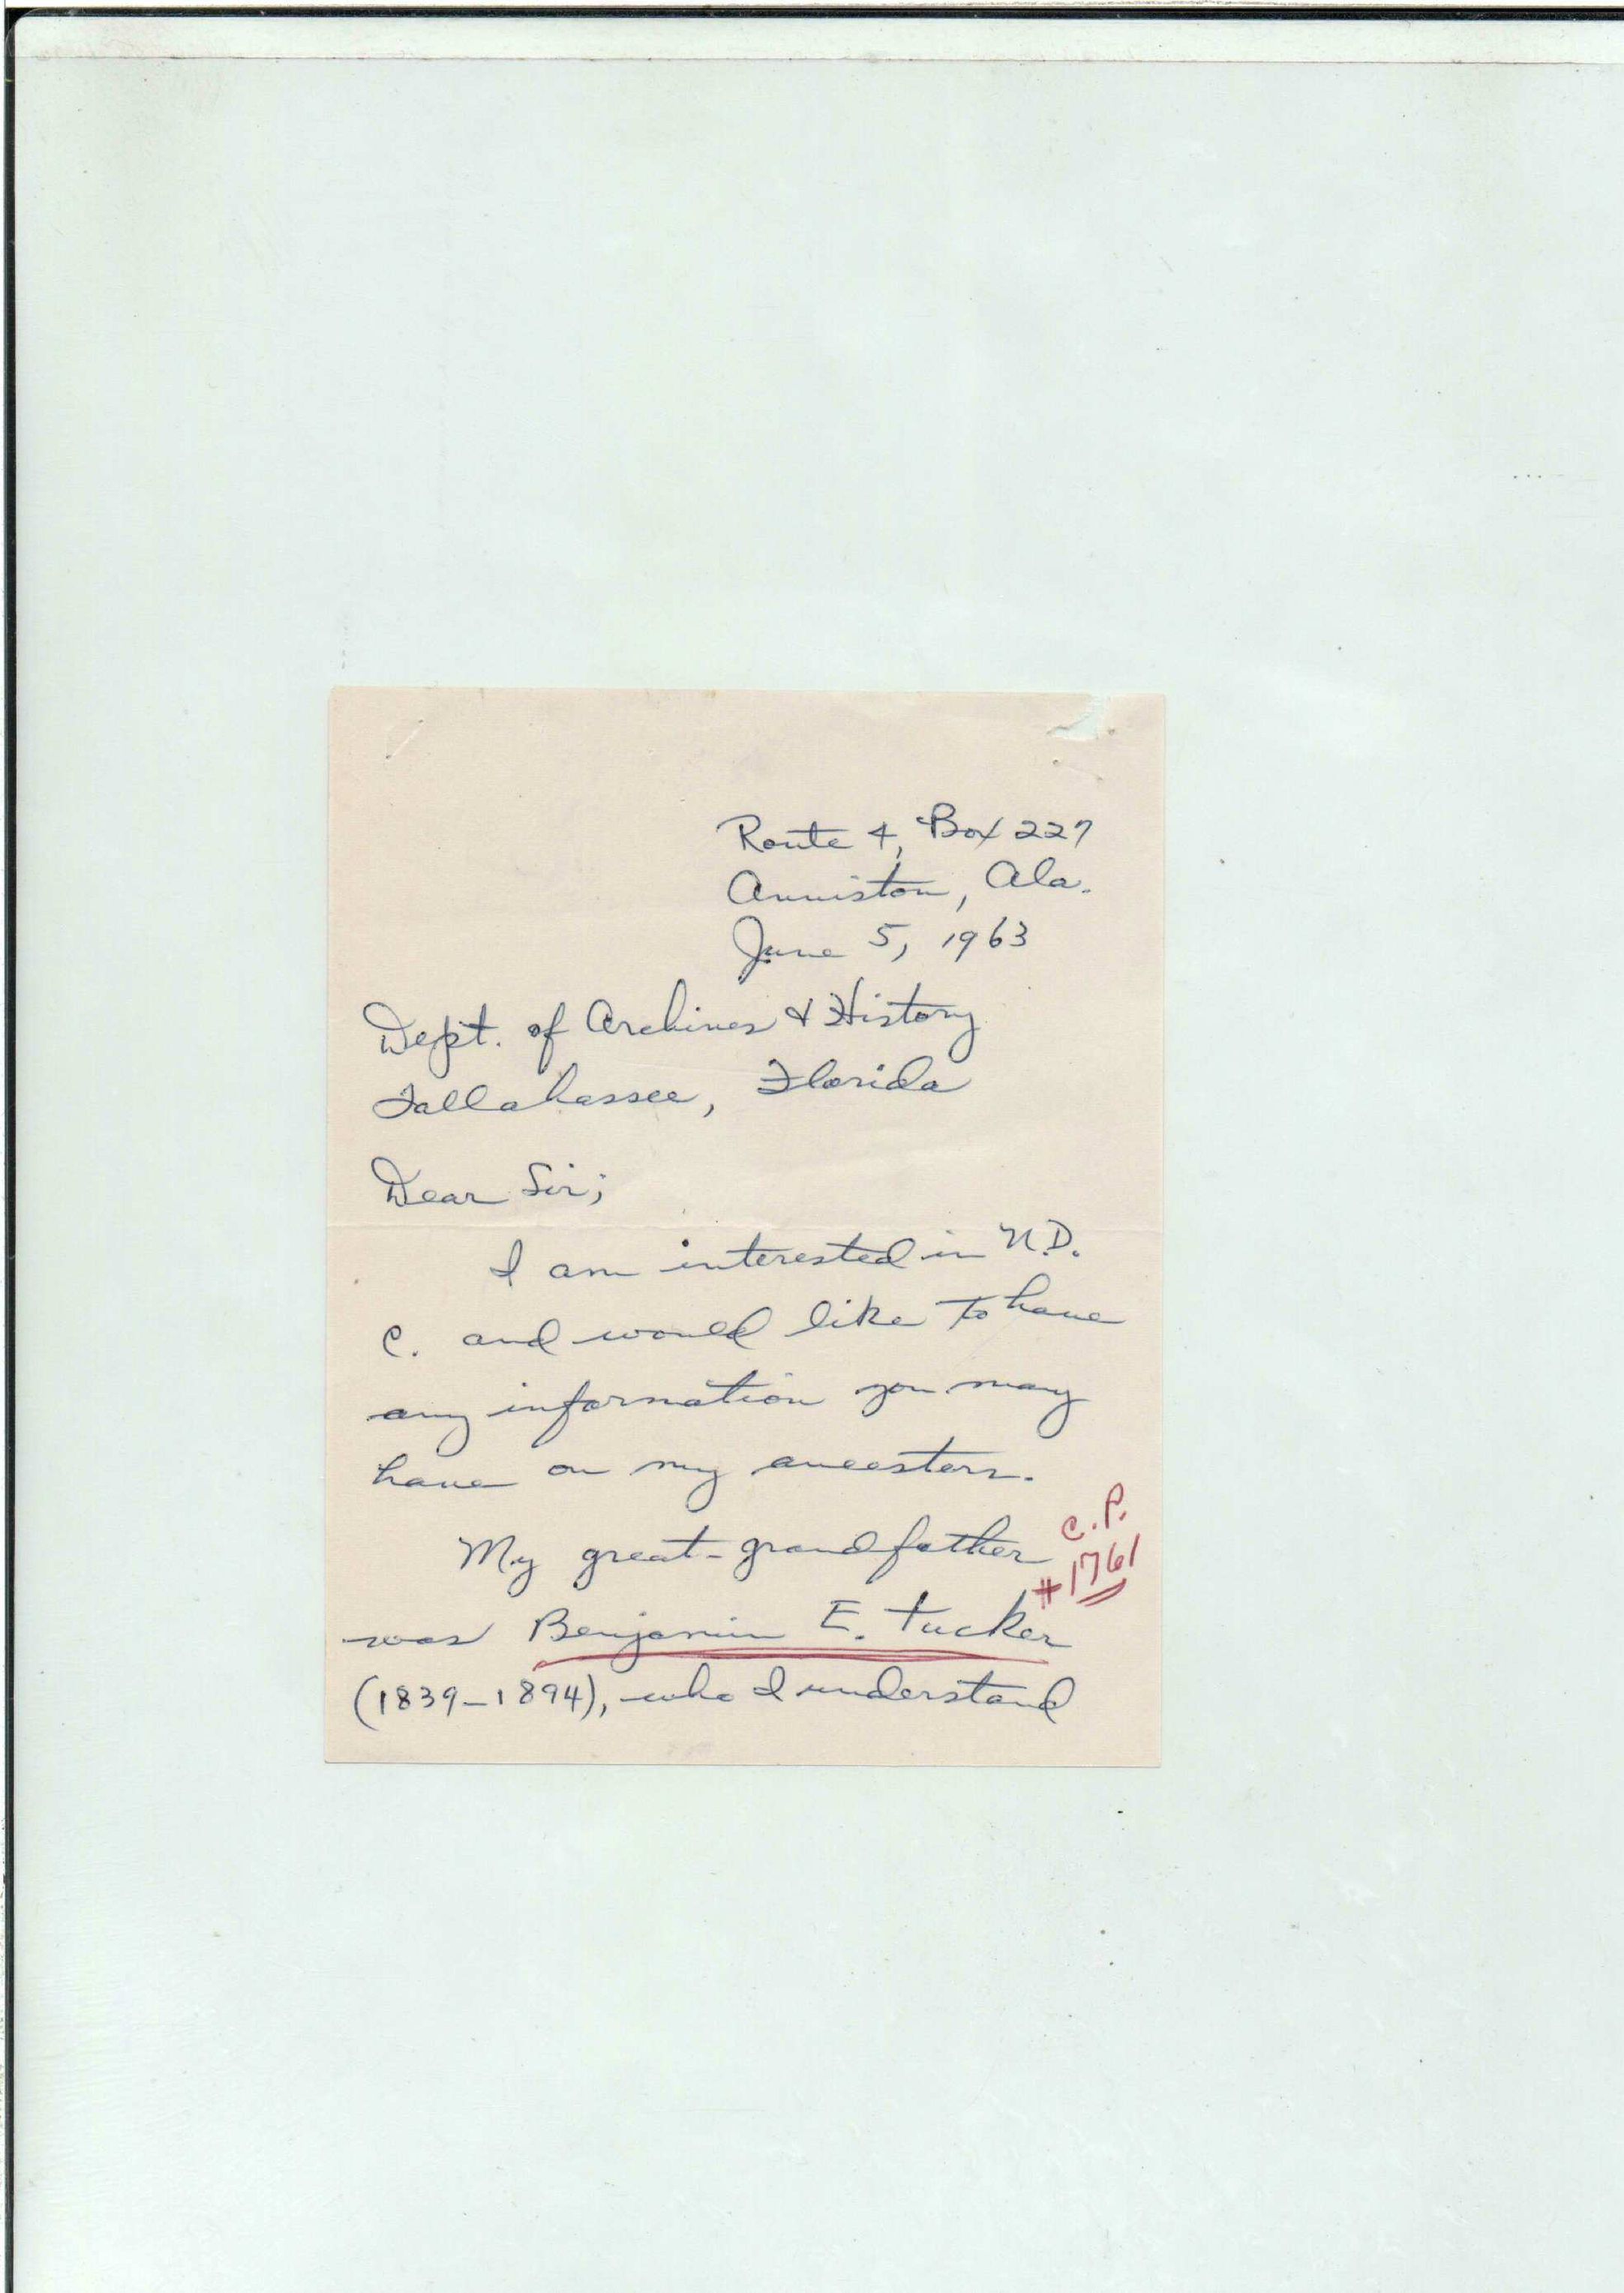 Route 4, Box 227
Anniston, Ala.
June 5, 1963
Dept. of Archives & History
Tallahassee, Florida
Dear Sir;
I am interested in U.D.
C. and would like to have
any information you may
have on my ancestors.
My great-grandfather
C.P.
#1761
was Benjamin E. Tucker
(1839-1894), who I understand